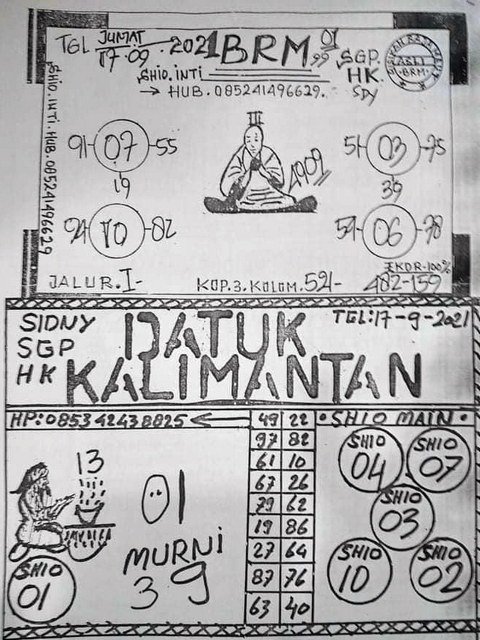 TGL JUMAT
17-09-2021 BRM 01
99 SGP.
HK.
SDY
ASLI
BRM
SHIO.INTI
→ HUB.085241496629.
SHIO.INTI.HUB.085241496629
91-07-55
19
94-10-82
4909
51-03-75
35
54-06-78
EKOR-100%
JALUR.I-
KOP.3.KOLOM.524-
482-159
SIDNY
SGP
HK
DATUK
KALIMANTAN
TGL:17-9-2021
HP:085342438825
49 22
97 82
61 10
67 26
79 62
19 86
27 64
87 76
63 40
•SHIO MAIN•
SHIO
04
SHIO
07
SHIO
03
SHIO
10
SHIO
02
13
01
MURNI
39
SHIO
01